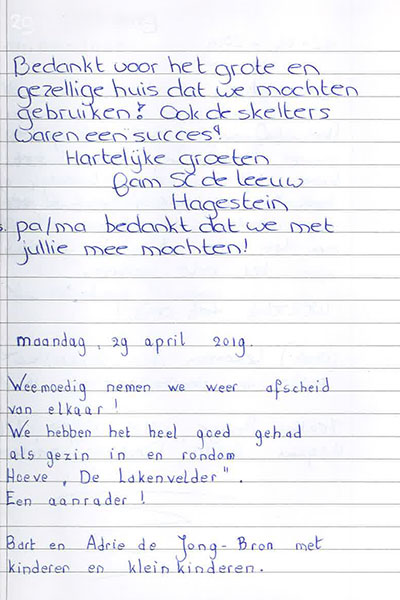 Bedankt voor het grote en
gezellige huis dat we mochten
gebruiken! Ook de skelters
waren een succes!
Hartelijke groeten
fam SC de Leeuw
Hagestein
s. pa/ma bedankt dat we met
jullie mee mochten!
maandag, 29 april 2019.
Weemoedig nemen we weer afscheid
van elkaar!
We hebben het heel goed gehad
als gezin in en rondom
Hoeve „De Lakenvelder".
Een aanrader!
Bart en Adrie de Jong-Bron met
kinderen en kleinkinderen.